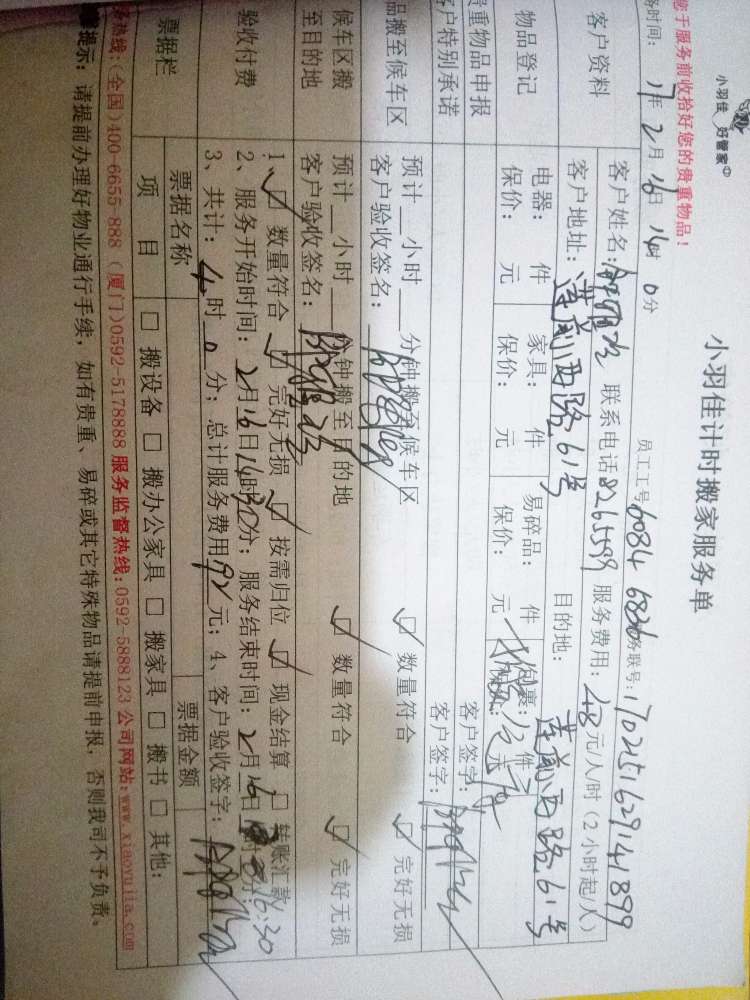 小羽佳 好管家
小羽佳计时搬家服务单
您于服务前收拾好您的贵重物品!
员工工号6084 6836 务联号:1702151629141899
务时间: 17年2月16日14时0分
客户资料 客户姓名: 联系电话8265599 服务费用:48元/人/时(2小时起/人)
客户地址:莲前西路61号 目的地:莲前西路61号
物品登记 电器: 件 家具: 件 易碎品: 件 包裹: 件
保价: 元 保价: 元 保价: 元 元
贵重物品申报 客户签字:
客户特别承诺 客户签字:
品搬至候车区 预计__小时__分钟搬至候车区 ☑ 数量符合 ☑ 完好无损
客户验收签名:
候车区搬至目的地 预计__小时__分钟搬至目的地 ☑ 数量符合 ☑ 完好无损
客户验收签名:
验收付费 1、☑ 数量符合 ☑ 完好无损 ☑ 按需归位 ☑ 现金结算 □ 转账汇款
2、服务开始时间:2月16日14时30分;服务结束时间:2月16日 16:30
3、共计:4时0分;总计服务费用192元;4、客户验收签字:
票据栏 票据名称 票据金额
项目 □ 搬设备 □ 搬办公家具 □ 搬家具 □ 搬书 □ 其他:
热线:(全国)400-6655-888 (厦门)0592-5178888 服务监督热线:0592-5888123 公司网站:www.xiaoyujia.com
提示:请提前办理好物业通行手续,如有贵重、易碎或其它特殊物品请提前申报,否则我司不予负责。